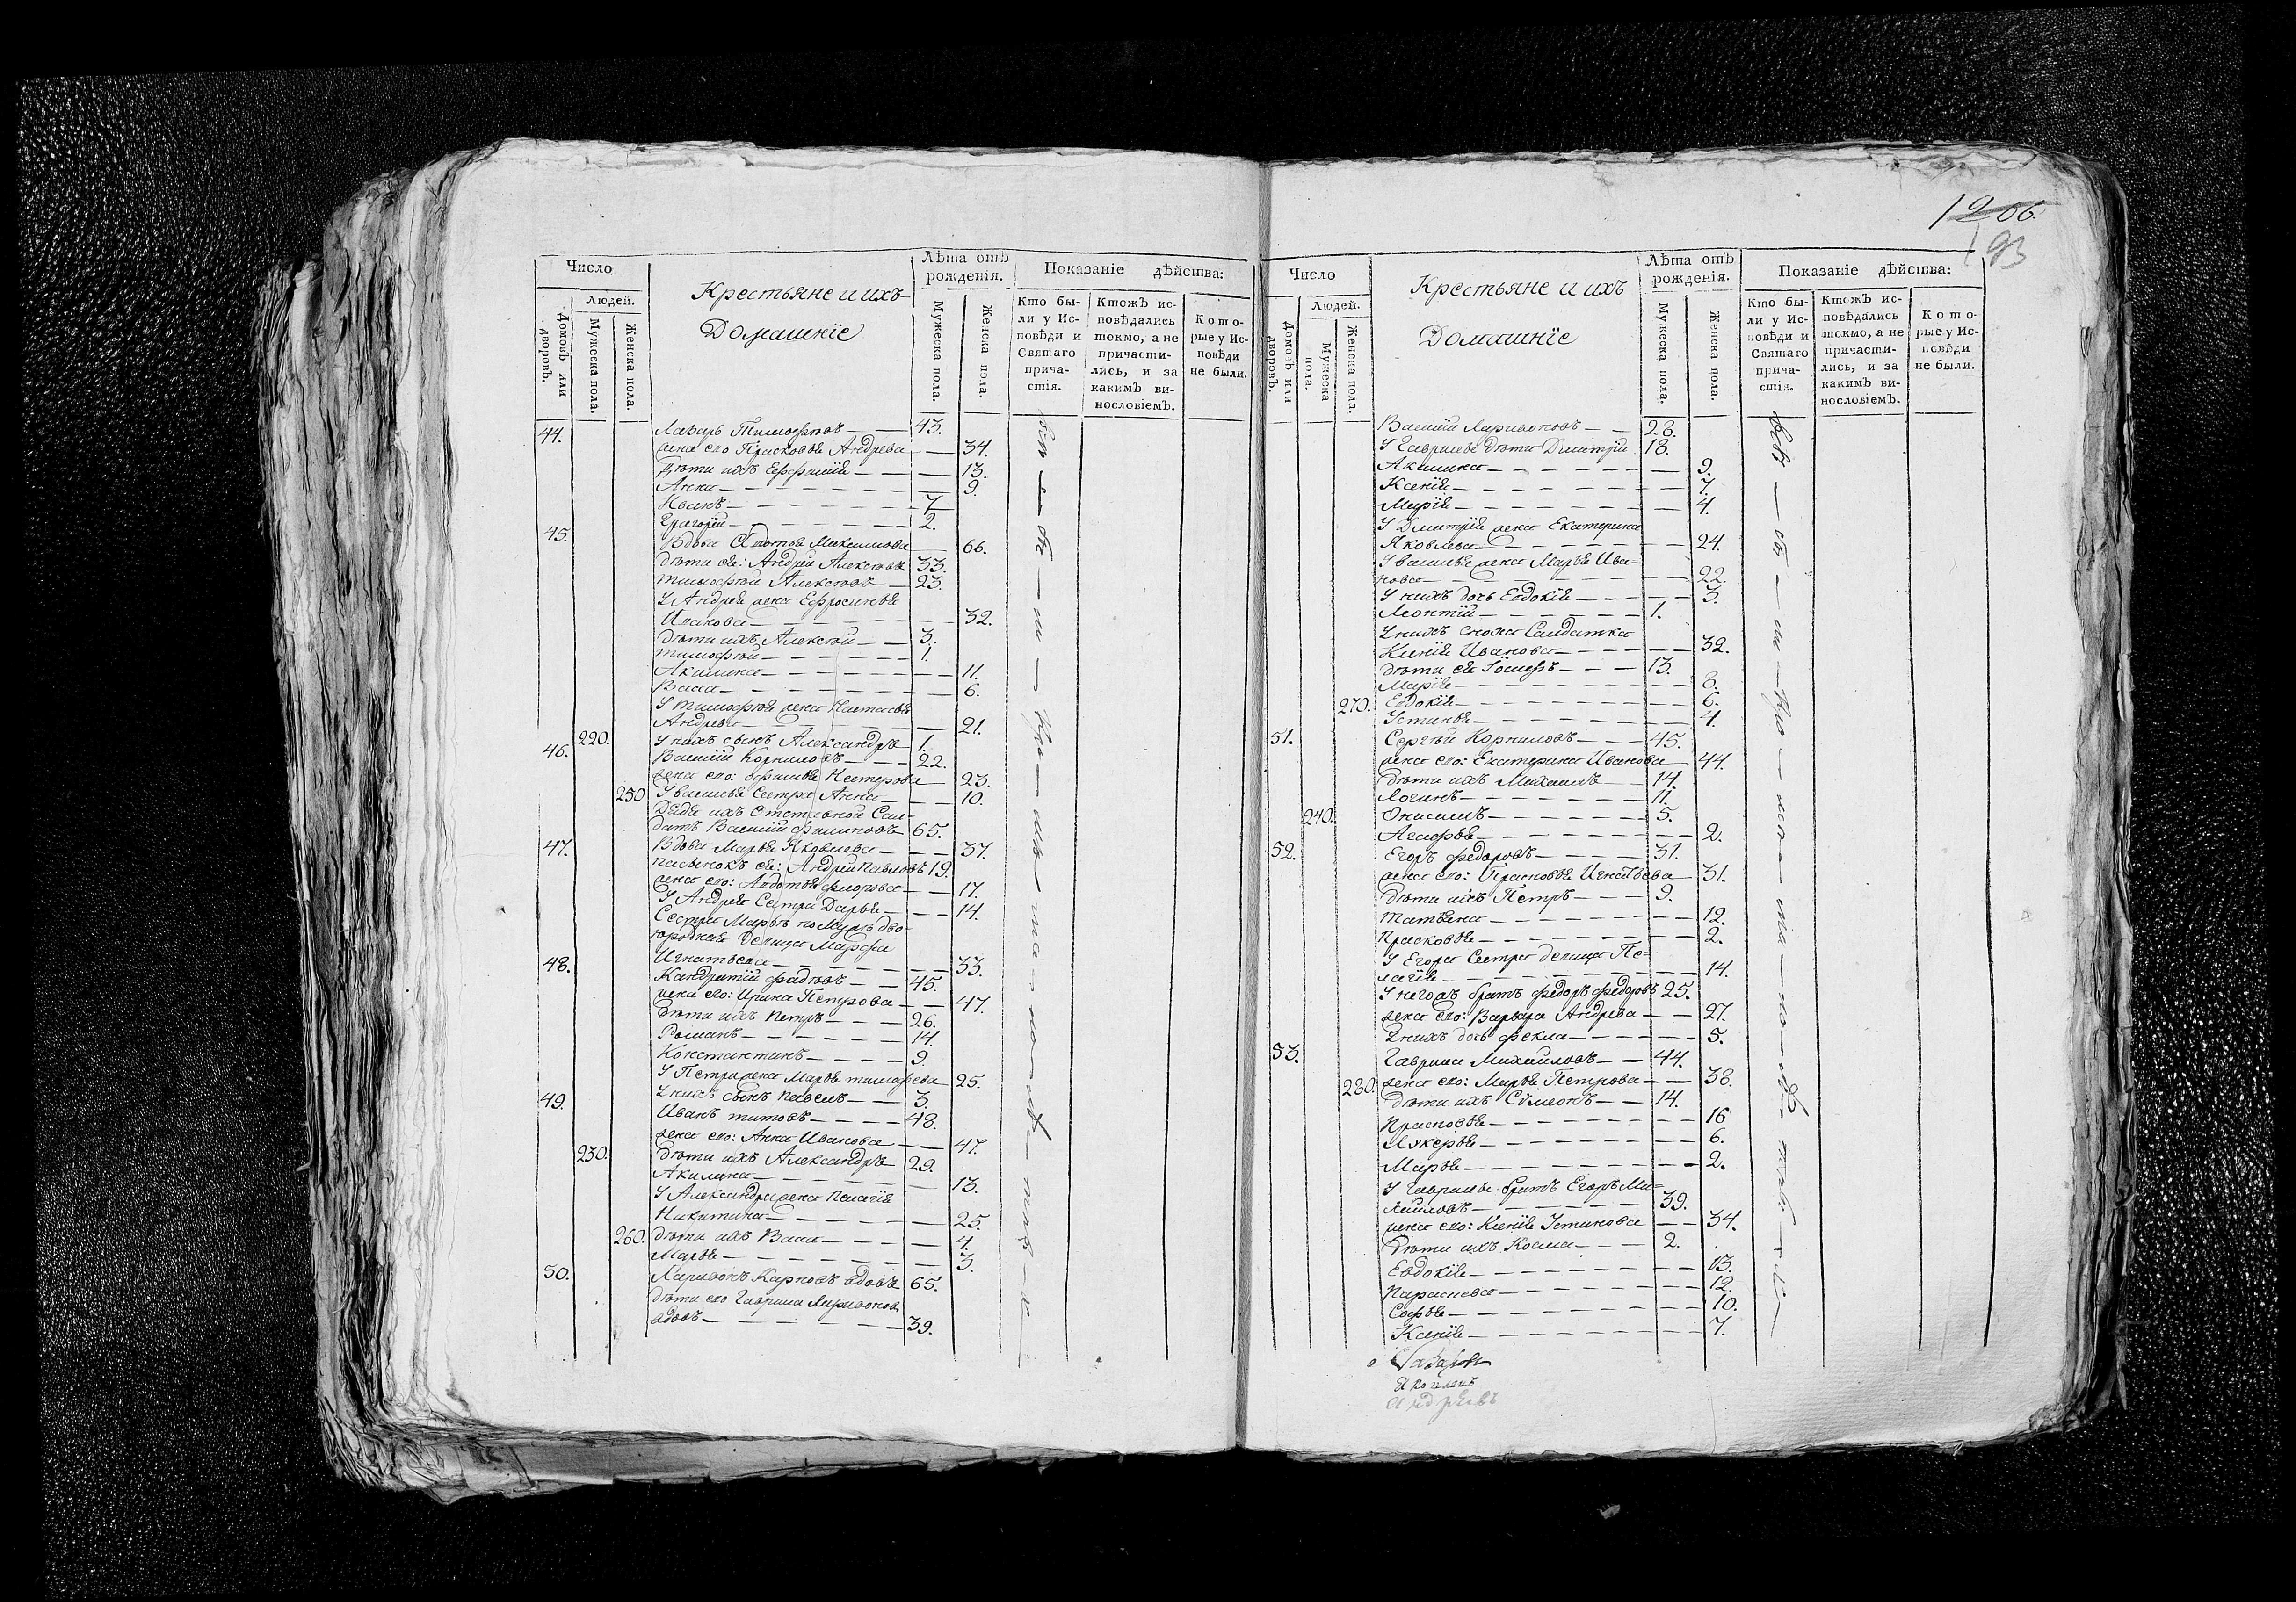 1206.
193
Число
Людей.
Домовъ или дворовъ.
Мужеска пола.
Женска пола.
Крестьяне и ихъ
Домашнїе
Лѣта отъ рожденїя.
Мужеска пола.
Женска пола.
Показанїе дѣйства:
Кто были у Исповѣди и Святаго причастїя.
Ктожъ исповѣдались токмо, а не причастились, и за какимъ винословїемъ.
Которые у Исповѣди не были.
44. Лазарь Тимофѣевъ 43.
жена его Прасковья Андреева 34.
дѣти ихъ 13.
Анна 9.
Иванъ 7
Григорїй 2.
45. Вдова Максимова 66.
дѣти ея: Андрей Алексѣевъ 33.
Тимофѣй Алексѣевъ 23.
У Андрея жена Ефросинья
32.
дѣти ихъ Алексѣй 3.
Тимофѣй 1.
Акилина 11.
Васса 6.
У Тимофѣя жена Настасья
Андреева 21.
220. У нихъ сынъ Александръ 1.
46. Василїй Корниловъ 22.
жена его: Нестерова 23.
250 У Василья Сестра Анна 10.
Дядя ихъ Отставной Сал-
датъ Василїй Филиповъ 65.
47. Вдова Марья Яковлева 37.
пасынокъ ея: Андрей Павловъ 19.
жена его: Авдотья 17.
У Андрея Сестра Дарья 14.
Сестра Марьѣ по мужѣ дво-
юродная Девица Марфа
Игнатьева 33.
48. Кандратїй Фадѣевъ 45.
жена его: Ирина Петрова 47.
дѣти ихъ Петръ 26.
Романъ 14.
Константинъ 9.
У Петра жена Марья Тимофева 25.
У нихъ сынъ Павелъ 3
49. Иванъ Титовъ 48.
жена его: Анна Иванова 47.
230. дѣти ихъ Александръ 29.
Акилина 13.
У Александра жена Пелагїя
Никитина 25.
260. дѣти ихъ Васса 4.
Марья 3.
50. Ларивонъ Карповъ вдовъ 65.
дѣти его Гаврила Ларивоновъ
вдовъ 39.
Число
Людей.
Домовъ или дворовъ.
Мужеска пола.
Женска пола.
Крестьяне и ихъ
Домашнїе
Лѣта отъ рожденїя.
Мужеска пола.
Женска пола.
Показанїе дѣйства:
Кто были у Исповѣди и Святаго причастїя.
Ктожъ исповѣдались токмо, а не причастились, и за какимъ винословїемъ.
Которые у Исповѣди не были.
Василїй Ларивоновъ 28.
У Гаврилы дѣти Дмитрїй 18.
Акилина 9.
Ксенїя 7.
Марїя 4.
У Дмитрїя жена Екатерина
Яковлева 24.
У Василья жена Марья Ива-
нова 22.
У нихъ дочь Евдокїя 3.
Леонтїй 1.
У нихъ сноха Салдатка
Ксенїя Иванова 32.
дѣти ея Іосифъ 13.
Марїя 8.
270. Евдокїя 6.
Устинья 4.
51. Сергѣй Корниловъ 45.
жена его: Екатерина Иванова 44.
дѣти ихъ Михаилъ 14.
Логинъ 11.
240. Онисимъ 5.
Агафья 2.
52. Егоръ Федоровъ 31.
жена его: Прасковья Игнатьева 31.
дѣти ихъ Петръ 9.
Татьяна 12.
Прасковья 2.
У Егора Сестра девица Пе-
лагїя 14.
У него жъ братъ Федоръ Федоровъ 25.
жена его: Варвара Андреева 27.
У нихъ дочь Фекла 5.
53. Гаврила Михайловъ 44.
280. жена его: Марья Петрова 38.
дѣти ихъ Сѵмеонъ 14.
Прасковья 16
Лукерья 6.
Марья 2.
У Гаврилы братъ Егоръ Ми-
хайловъ 39.
жена его: Ксенїя Устинова 34.
Дѣти ихъ Косма 2.
Евдокїя 13.
Параскева 12.
Софья 10.
Ксенїя 7.